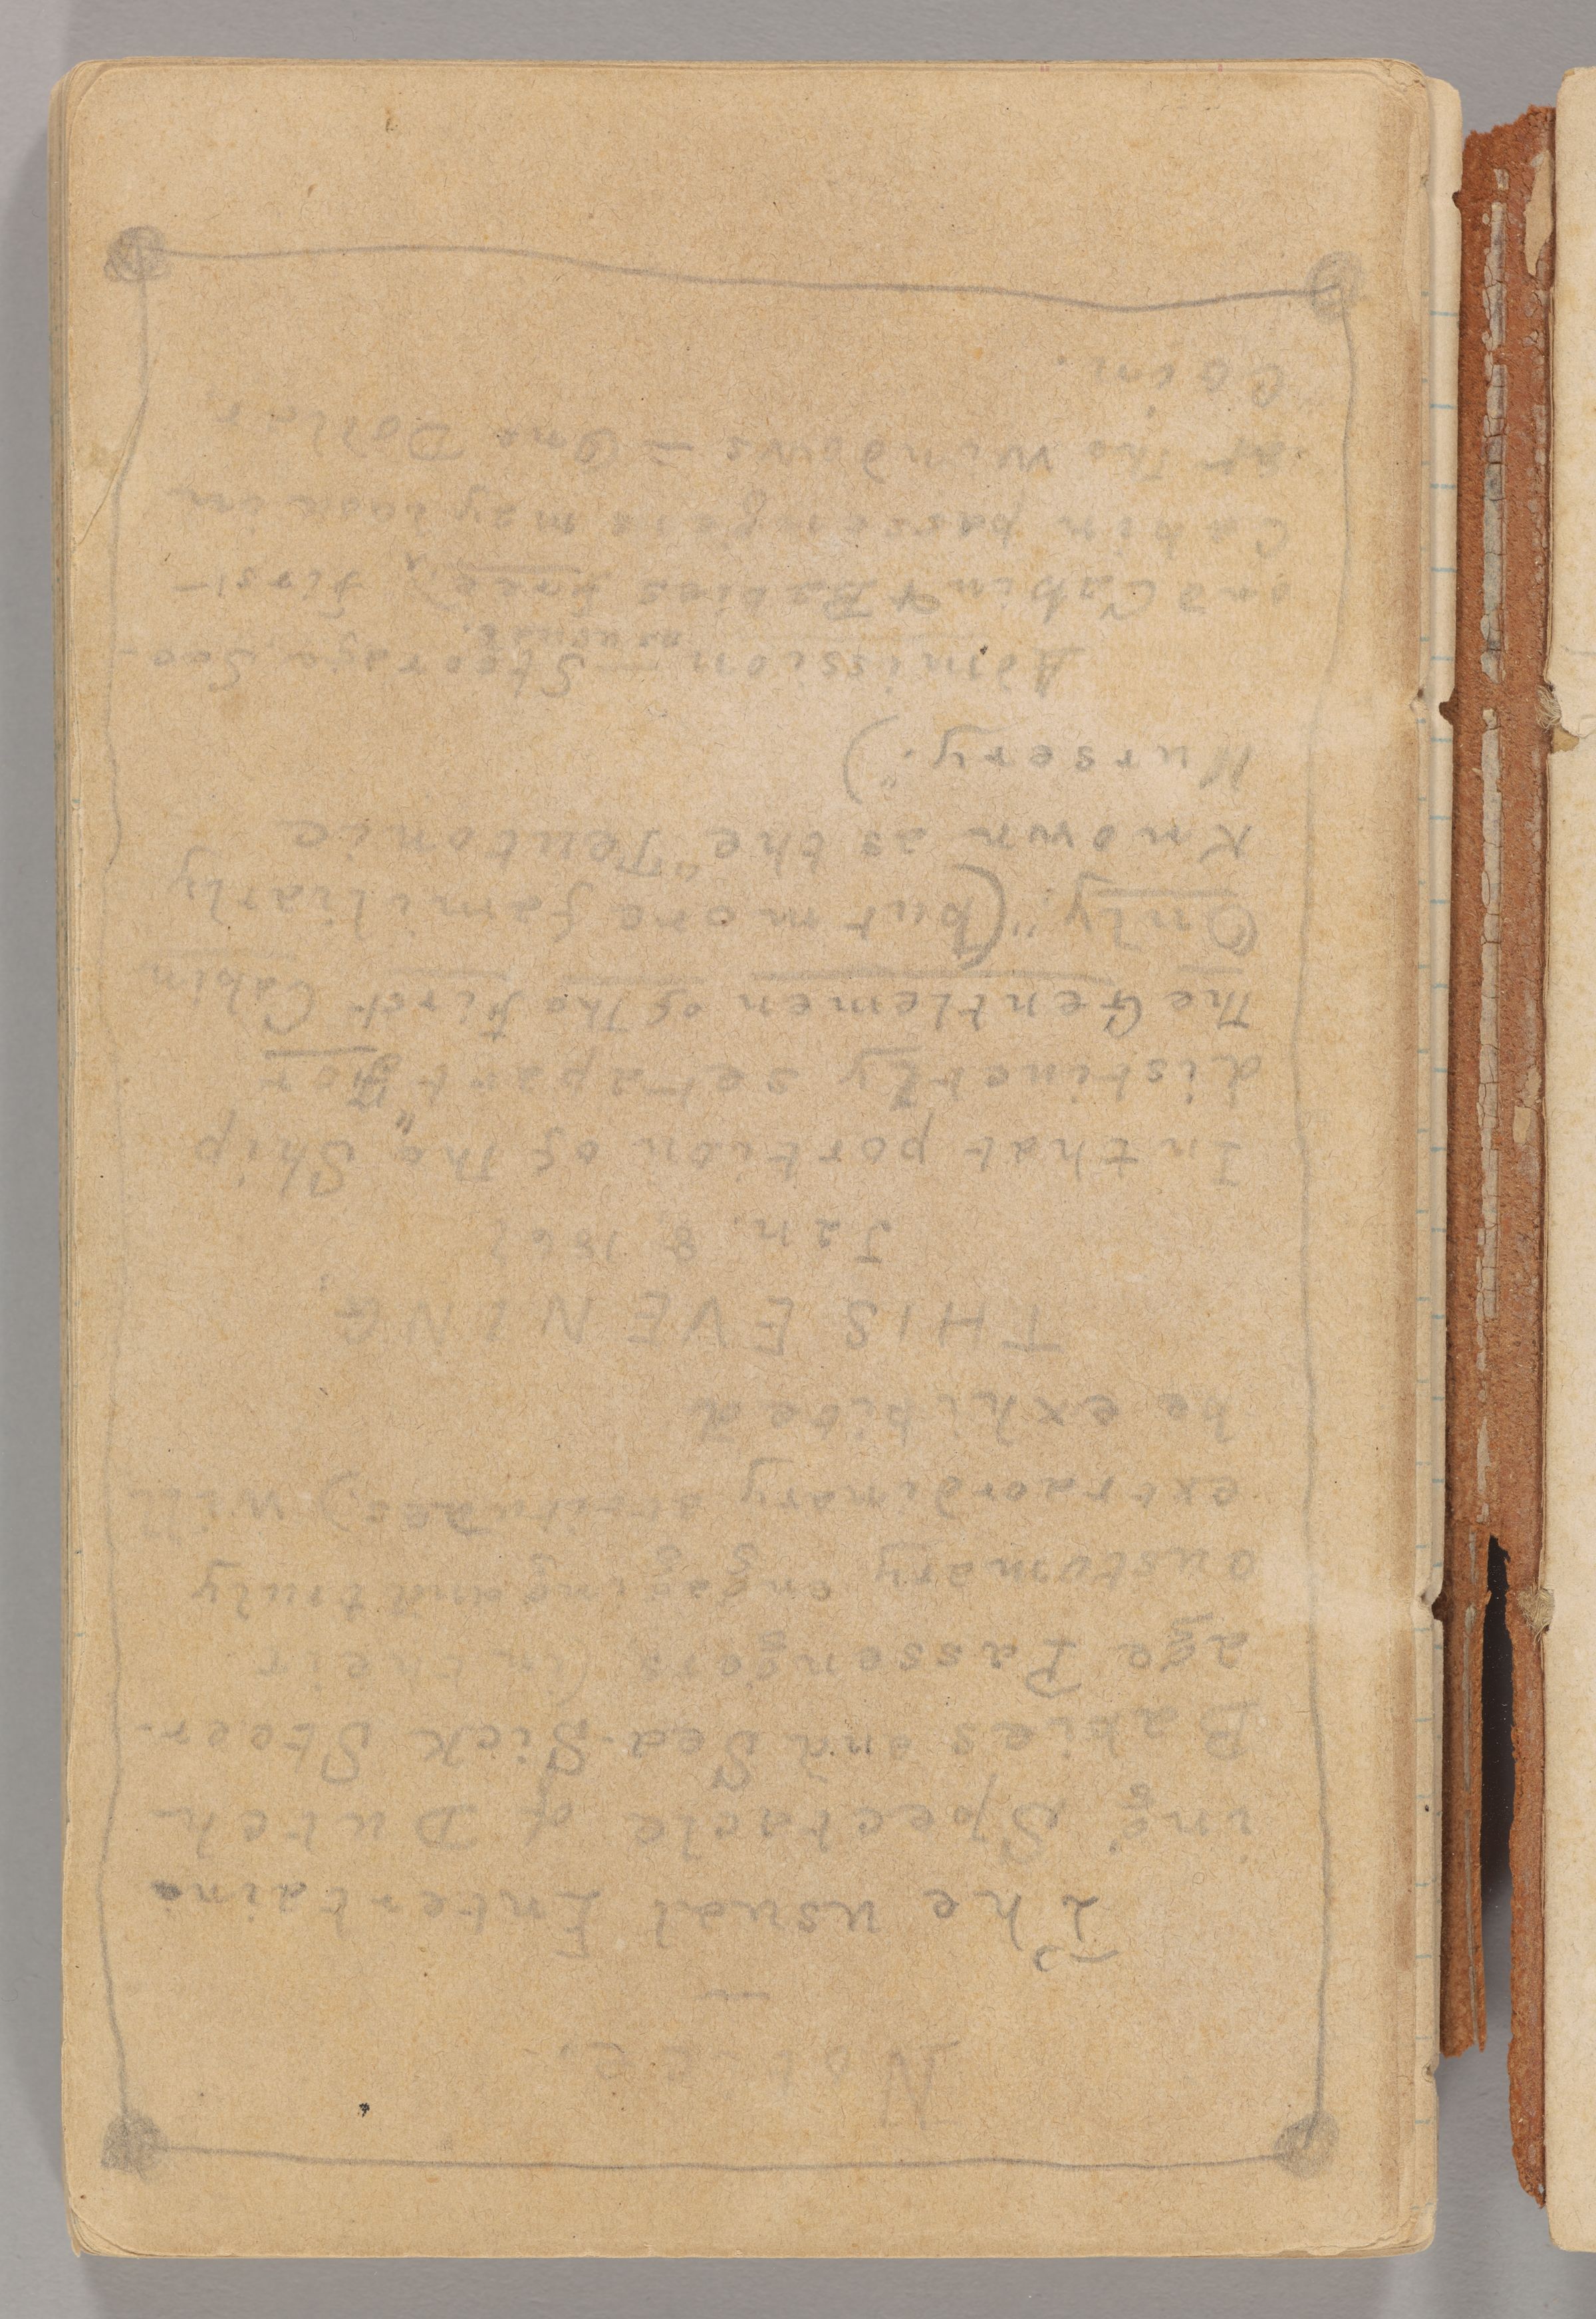 Notice.
The usual Entertain-
ing Spectacle of Dutch
Babies and Sea-Sick Steer-
age Passengers (in their
customary engaging and truly
extraordinary attitudes,) will
be exhibited
THIS EVENING,
Jan. 8 1867
In that portion of the Ship
distinctly set apart "For
The Gentlemen of the First Cabin
Only," (but more familiarly
known as the "Teutonic
Nursery.")
Admission — Steerage, Sec-
ond Cabin & Babies free, as usual. First
Cabin passengers may look in
at the windows — One Dollar,
Coin.